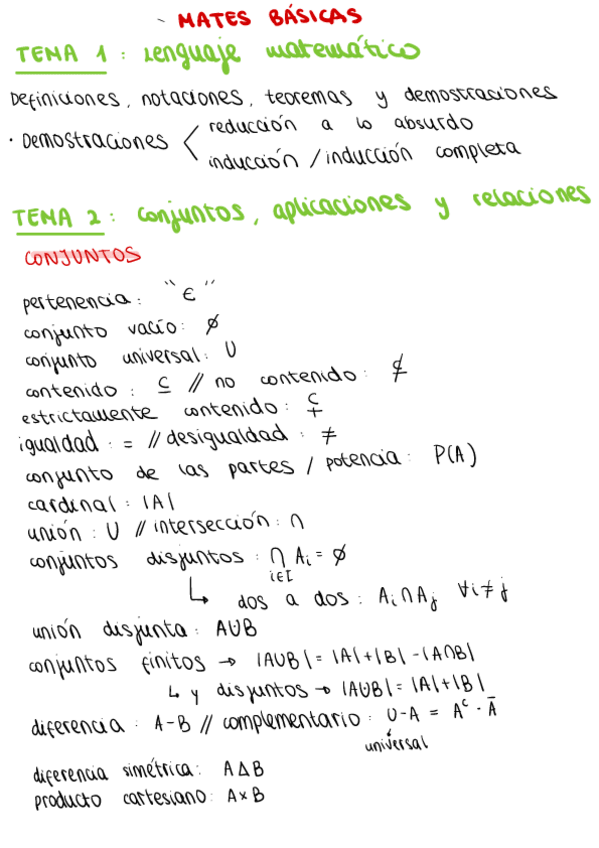 MATES BÁSICAS
TEMA 1 : Lenguaje matemático
Definiciones, notaciones, teoremas y demostraciones
· Demostraciones < reducción a lo absurdo
inducción / inducción completa
TEMA 2 : conjuntos, aplicaciones y relaciones
CONJUNTOS
pertenencia : "∈"
conjunto vacío : ∅
conjunto universal : U
contenido : ⊆ // no contenido : ⊈
estrictamente contenido : ⊊
igualdad : = // desigualdad : ≠
conjunto de las partes / potencia : P(A)
cardinal : |A|
unión : ∪ // intersección : ∩
conjuntos disjuntos : ∩ Ai = ∅
i∈I
↳ dos a dos : Ai ∩ Aj ∀i ≠ j
unión disjunta : A∪B
conjuntos finitos → |A∪B| = |A|+|B| - |A∩B|
↳ y disjuntos → |A∪B| = |A|+|B|
diferencia : A-B // complementario : U-A = Aᶜ · Ā
universal
diferencia simétrica : A∆B
producto cartesiano : A×B